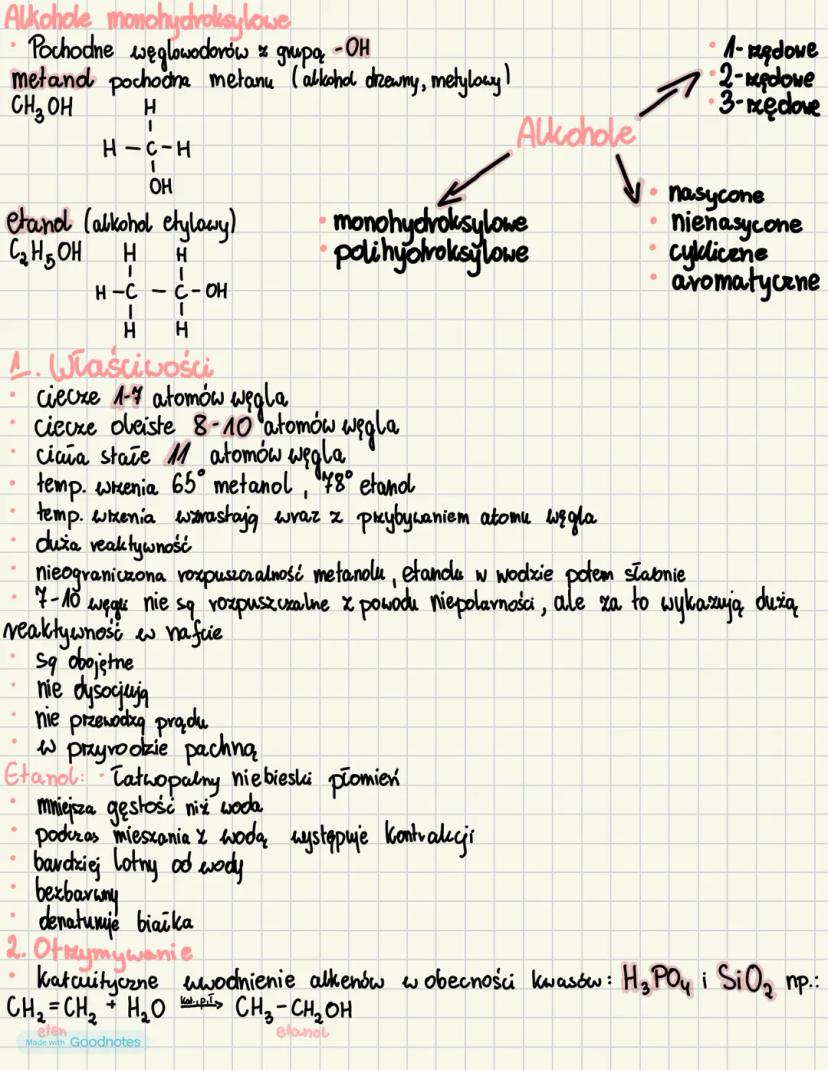 Alkohole monohydroksylowe
• Pochodne węglowodorów z grupą -OH
metanol pochodna metanu (alkohol drzewny, metylowy)
CH₃OH
H
H – C – H
OH
etanol (alkohol etylowy)
C₂H₅OH
H H
H – C – C – OH
H H
• 1-rzędowe
• 2-rzędowe
• 3-rzędowe
Alkohole
• monohydroksylowe
• polihydroksylowe
• nasycone
• nienasycone
• cykliczne
• aromatyczne
1. Właściwości
• ciecze 1-7 atomów węgla
• ciecze oleiste 8-10 atomów węgla
• ciała stałe 11 atomów węgla
• temp. wrzenia 65° metanol, 78° etanol
• temp. wrzenia wzrastają wraz z przybywaniem atomu węgla
• duża reaktywność
• nieograniczona rozpuszczalność metanolu, etanolu w wodzie potem słabnie
• 7-10 węgli nie są rozpuszczalne z powodu niepolarności, ale za to wykazują dużą
reaktywność w nafcie
• są obojętne
• nie dysocjują
• nie przewodzą prądu
• w przyrodzie pachną
Etanol: • łatwopalny niebieski płomień
• mniejsza gęstość niż woda
• podczas mieszania z wodą występuje kontrakcji
• bardziej lotny od wody
• bezbarwny
• denaturuje białka
2. Otrzymywanie
• katalityczne uwodnienie alkenów w obecności kwasów: H₃PO₄ i SiO₂ np.:
CH₂=CH₂ + H₂O kat.,p,T→ CH₃–CH₂OH
eten etanol
Made with Goodnotes